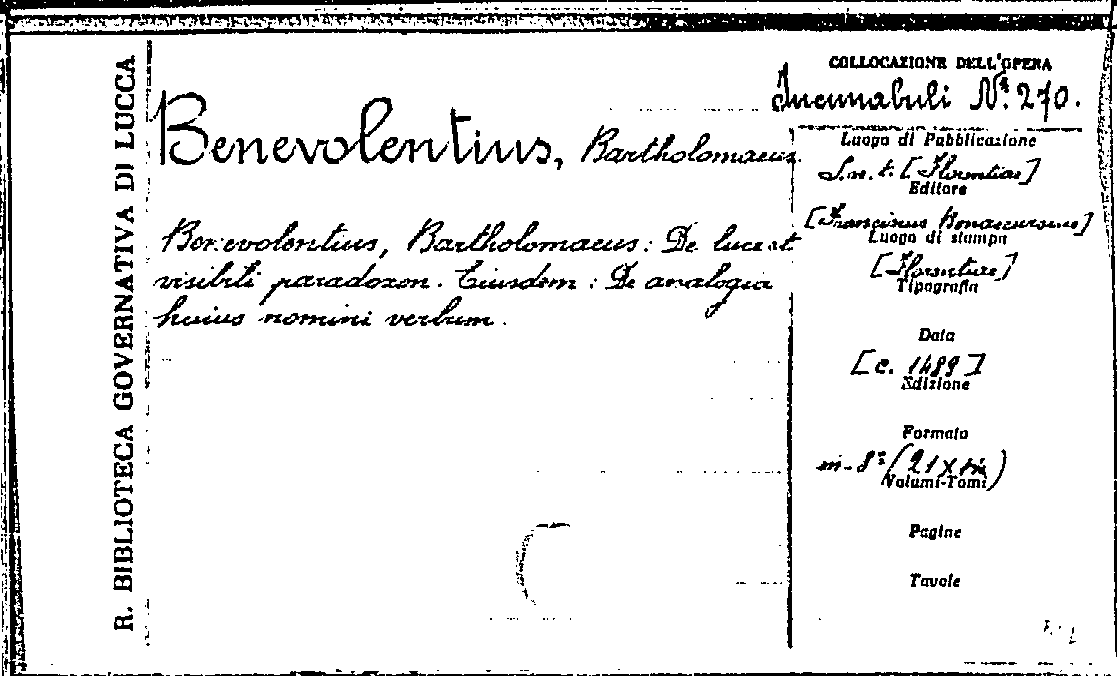 R. BIBLIOTECA GOVERNATIVA DI LUCCA
COLLOCAZIONE DELL'OPERA
Incunabuli Nº 270.
Benevolentius, Bartholomaeus.
Benevolentius, Bartholomaeus: De luce et
visibili paradoxon. Eiusdem: De analogia
huius nomini verbum.
Luogo di Pubblicazione
S. n. t. [Florentiae]
Editore
[Franciscus Bonaccursius]
Luogo di stampa
[Florentiae]
Tipografia
Data
[c. 1489]
Edizione
Formato
in-8º (21 x
Volumi-Tomi
Pagine
Tavole